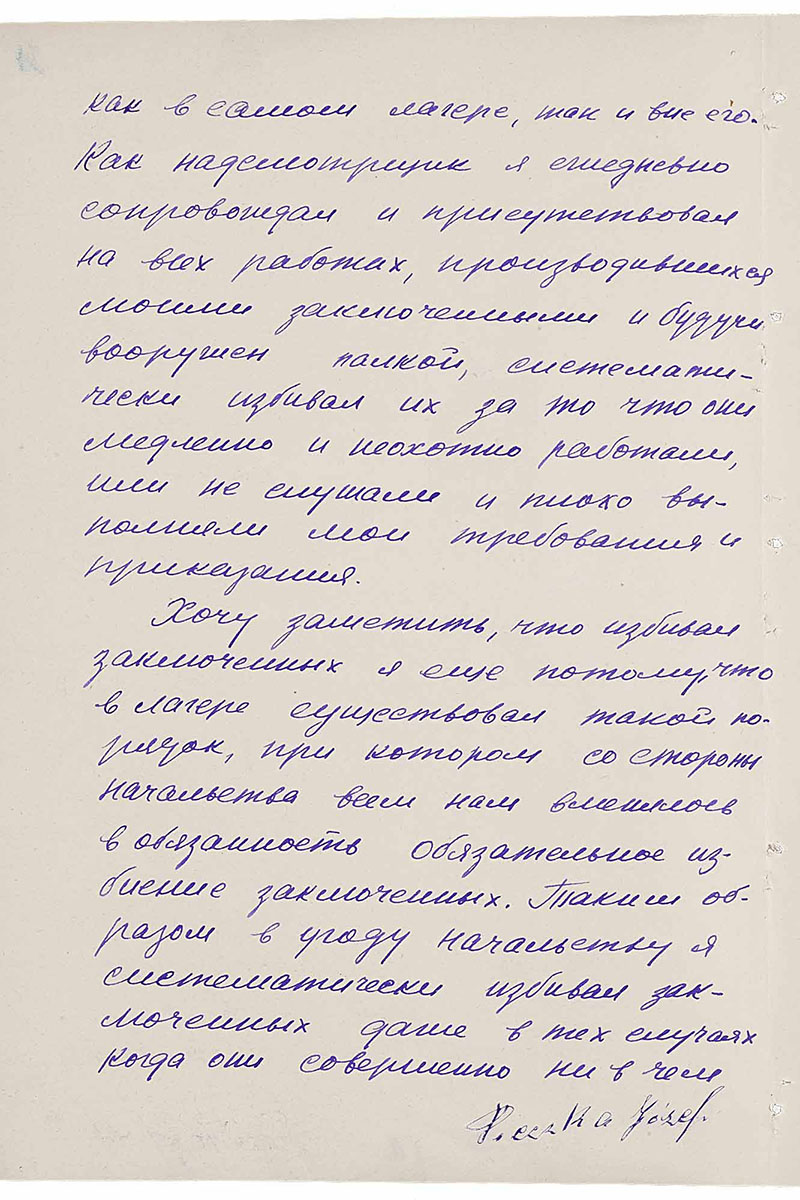 как в самом лагере, так и вне его.
Как надсмотрщик я ежедневно
сопровождал и присутствовал
на всех работах, производившихся
моими заключенными и будучи
вооружен палкой, системати-
чески избивал их за то что они
медленно и неохотно работали,
или не слушали и плохо вы-
полняли мои требования и
приказания.
Хочу заметить, что избивал
заключенных я еще потому, что
в лагере существовал такой по-
рядок, при котором со стороны
начальства всем нам вменялось
в обязанность обязательное из-
биение заключенных. Таким об-
разом в угоду начальству я
систематически избивал зак-
люченных даже в тех случаях
когда они совершенно ни в чем
Józef